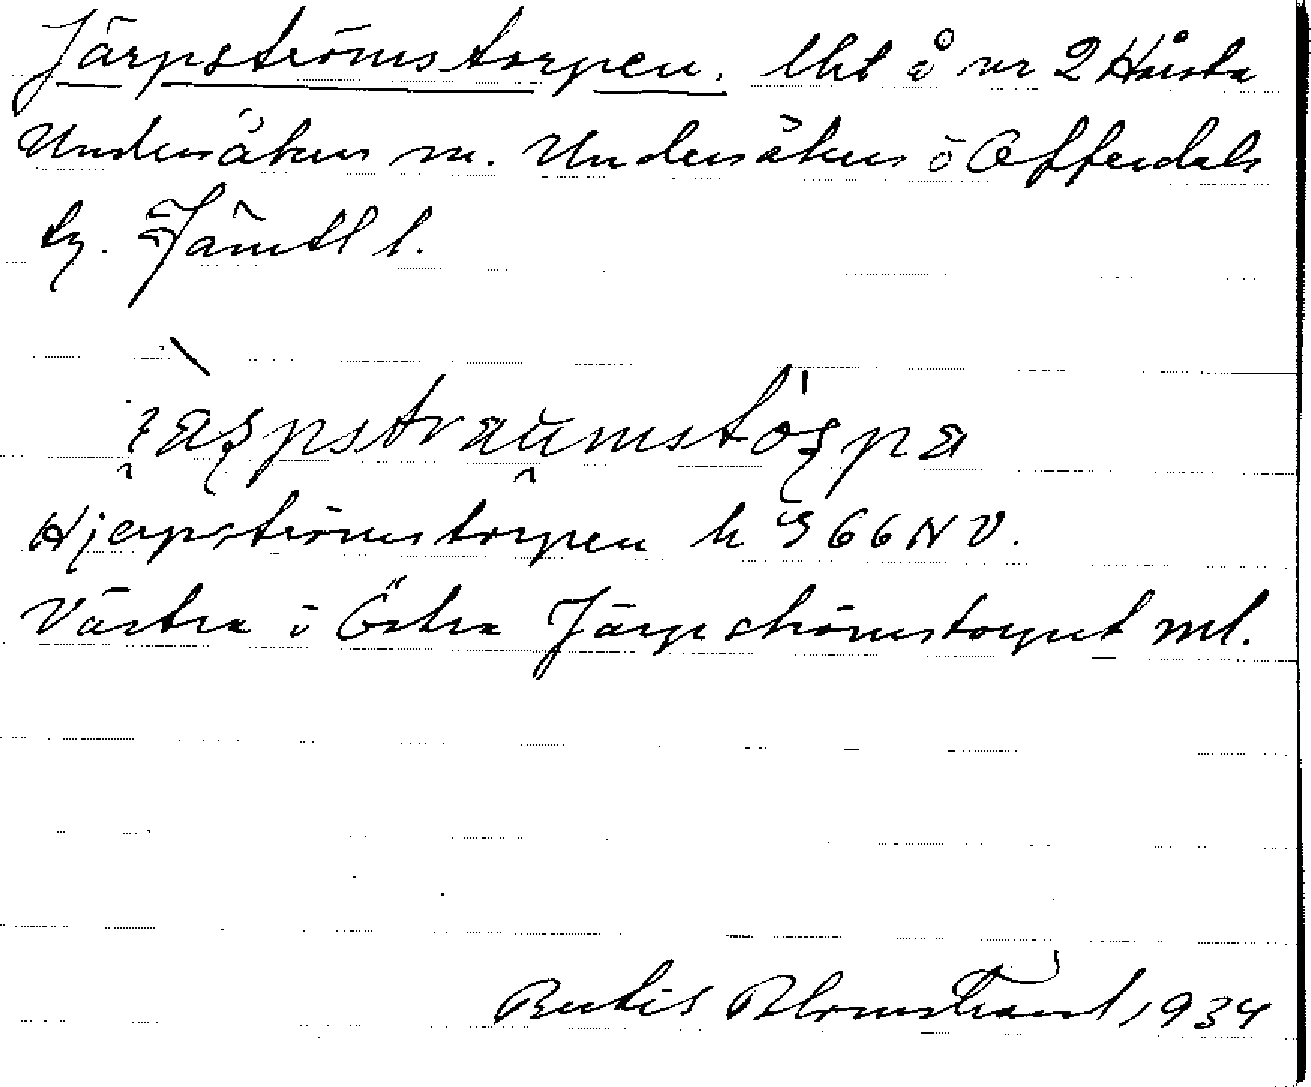 Järpströmstorpen. lht å nr 2 Håsta
Undersåkers sn. Undersåkers o Offerdals
tg. Jämtl l.
Hjerpströmstorpen k 366 NV.
Västra o Östra Järpströmstorpet ml.
Bertil Blomstrand, 1934